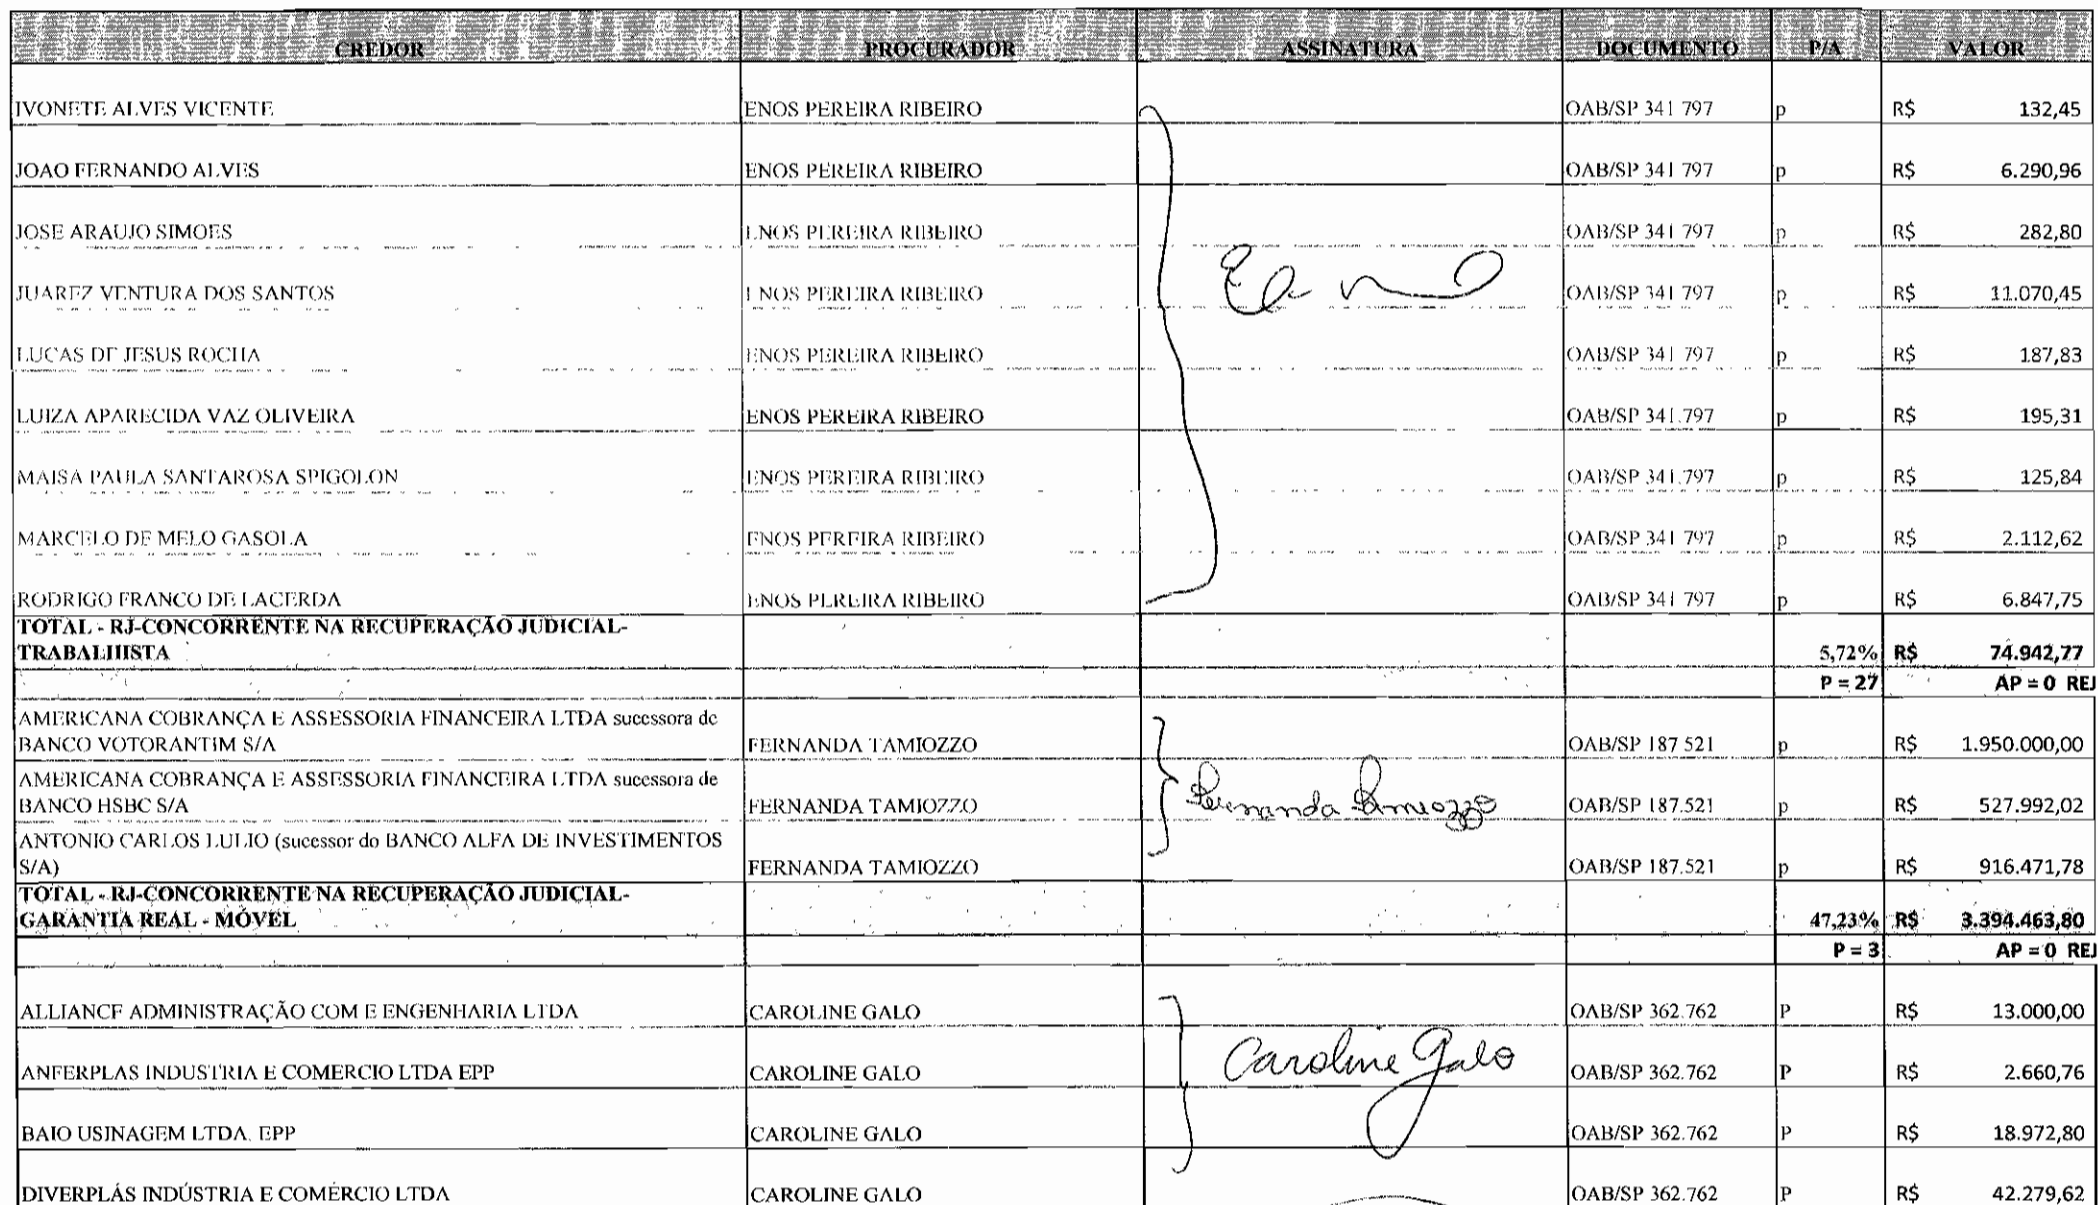 CREDOR PROCURADOR ASSINATURA DOCUMENTO P/A VALOR
IVONETE ALVES VICENTE ENOS PEREIRA RIBEIRO OAB/SP 341 797 p R$ 132,45
JOAO FERNANDO ALVES ENOS PEREIRA RIBEIRO OAB/SP 341 797 p R$ 6.290,96
JOSE ARAUJO SIMOES ENOS PEREIRA RIBEIRO OAB/SP 341 797 p R$ 282,80
JUAREZ VENTURA DOS SANTOS ENOS PEREIRA RIBEIRO OAB/SP 341 797 p R$ 11.070,45
LUCAS DE JESUS ROCHA ENOS PEREIRA RIBEIRO OAB/SP 341 797 p R$ 187,83
LUIZA APARECIDA VAZ OLIVEIRA ENOS PEREIRA RIBEIRO OAB/SP 341.797 p R$ 195,31
MAISA PAULA SANTAROSA SPIGOLON ENOS PEREIRA RIBEIRO OAB/SP 341.797 p R$ 125,84
MARCELO DE MELO GASOLA ENOS PEREIRA RIBEIRO OAB/SP 341 797 p R$ 2.112,62
RODRIGO FRANCO DE LACERDA ENOS PEREIRA RIBEIRO OAB/SP 341 797 p R$ 6.847,75
TOTAL - RJ-CONCORRENTE NA RECUPERAÇÃO JUDICIAL-
TRABALHISTA 5,72% R$ 74.942,77
P = 27 AP = 0 REJ
AMERICANA COBRANÇA E ASSESSORIA FINANCEIRA LTDA sucessora de
BANCO VOTORANTIM S/A FERNANDA TAMIOZZO OAB/SP 187 521 p R$ 1.950.000,00
AMERICANA COBRANÇA E ASSESSORIA FINANCEIRA LTDA sucessora de
BANCO HSBC S/A FERNANDA TAMIOZZO Fernanda Tamiozzo OAB/SP 187.521 p R$ 527.992,02
ANTONIO CARLOS LULIO (sucessor do BANCO ALFA DE INVESTIMENTOS
S/A) FERNANDA TAMIOZZO OAB/SP 187.521 p R$ 916.471,78
TOTAL - RJ-CONCORRENTE NA RECUPERAÇÃO JUDICIAL-
GARANTIA REAL - MÓVEL 47,23% R$ 3.394.463,80
P = 3 AP = 0 REJ
ALLIANCE ADMINISTRAÇÃO COM E ENGENHARIA LTDA CAROLINE GALO OAB/SP 362.762 P R$ 13.000,00
ANFERPLAS INDUSTRIA E COMERCIO LTDA EPP CAROLINE GALO Caroline Galo OAB/SP 362.762 P R$ 2.660,76
BAIO USINAGEM LTDA. EPP CAROLINE GALO OAB/SP 362.762 P R$ 18.972,80
DIVERPLÁS INDÚSTRIA E COMÉRCIO LTDA CAROLINE GALO OAB/SP 362.762 P R$ 42.279,62